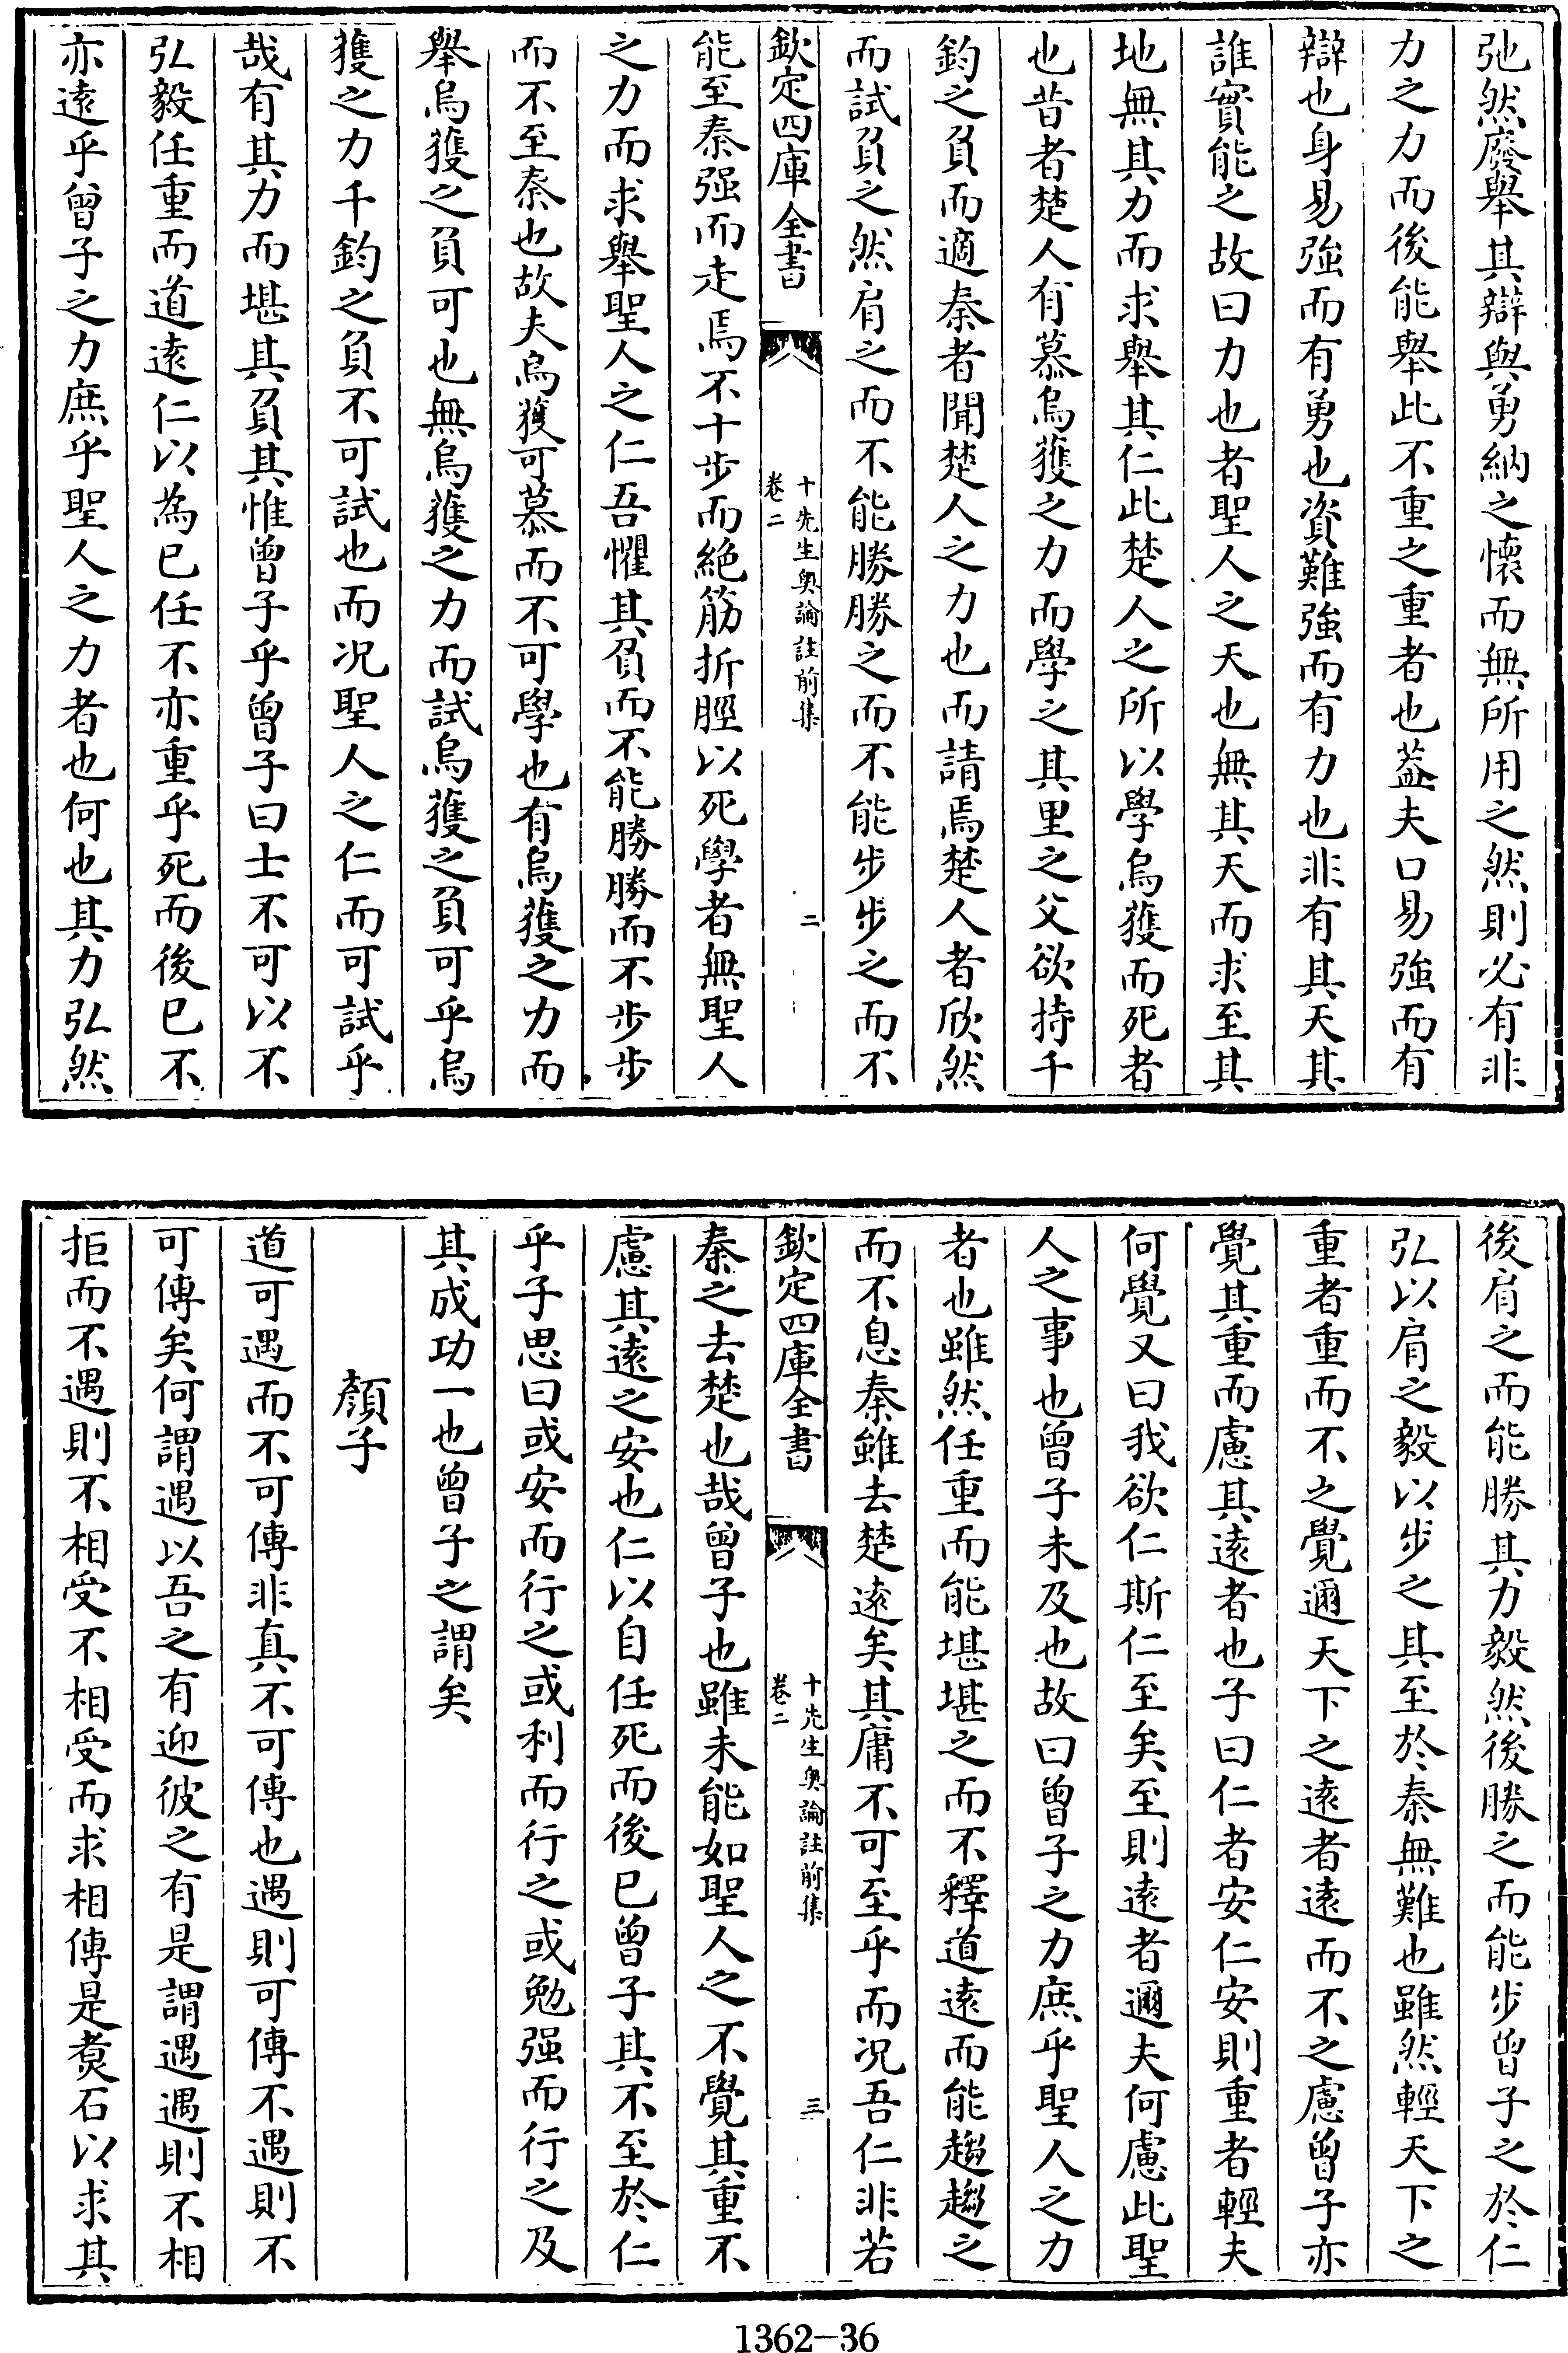 弛然廢舉其辯與勇納之懷而無所用之然則必有非
力之力而後能舉此不重之重者也葢夫口易強而有
辯也身易強而有勇也資難強而有力也非有其天其
誰實能之故曰力也者聖人之天也無其天而求至其
地無其力而求舉其仁此楚人之所以學烏獲而死者
也昔者楚人有慕烏獲之力而學之其里之父欲持千
鈞之負而適秦者聞楚人之力也而請焉楚人者欣然
而試負之然肩之而不能勝勝之而不能步步之而不
欽定四庫全書
十先生奥論註前集
卷二
二
能至秦强而走焉不十步而絶筋折脛以死學者無聖人
之力而求舉聖人之仁吾懼其負而不能勝勝而不步步
而不至秦也故夫烏獲可慕而不可學也有烏獲之力而
舉烏獲之負可也無烏獲之力而試烏獲之負可乎烏
獲之力千鈞之負不可試也而况聖人之仁而可試乎
哉有其力而堪其負其惟曾子乎曾子曰士不可以不
弘毅任重而道遠仁以為已任不亦重乎死而後已不
亦遠乎曾子之力庶乎聖人之力者也何也其力弘然
後肩之而能勝其力毅然後勝之而能步曾子之於仁
弘以肩之毅以步之其至於秦無難也雖然輕天下之
重者重而不之覺邇天下之遠者遠而不之慮曾子亦
覺其重而慮其遠者也子曰仁者安仁安則重者輕夫
何覺又曰我欲仁斯仁至矣至則遠者邇夫何慮此聖
人之事也曾子未及也故曰曾子之力庶乎聖人之力
者也雖然任重而能堪堪之而不釋道遠而能趨趨之
而不息秦雖去楚遠矣其庸不可至乎而况吾仁非若
欽定四庫全書
十先生奥論註前集
卷二
三
秦之去楚也哉曾子也雖未能如聖人之不覺其重不
慮其遠之安也仁以自任死而後已曾子其不至於仁
乎子思曰或安而行之或利而行之或勉强而行之及
其成功一也曾子之謂矣
顏子
道可遇而不可傳非真不可傳也遇則可傳不遇則不
可傳矣何謂遇以吾之有迎彼之有是謂遇遇則不相
拒而不遇則不相受不相受而求相傳是煑石以求其
1362-36